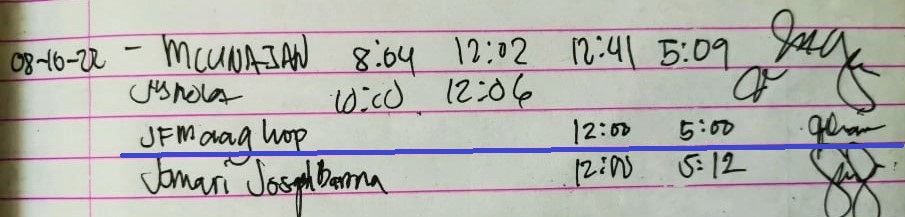 08-16-22 - MCUNAJAN 8:04 12:02 12:41 5:09
10:00 12:06
JFMaaghop 12:00 5:00
Jomari Joseph 12:00 5:12